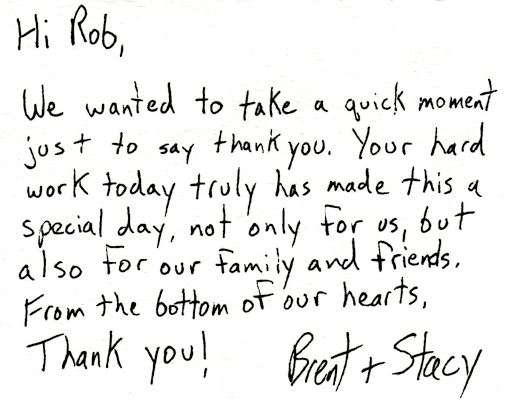 Hi Rob,
We wanted to take a quick moment
just to say thank you. Your hard
work today truly has made this a
special day, not only for us, but
also for our family and friends.
From the bottom of our hearts,
Thank you! Brent + Stacy